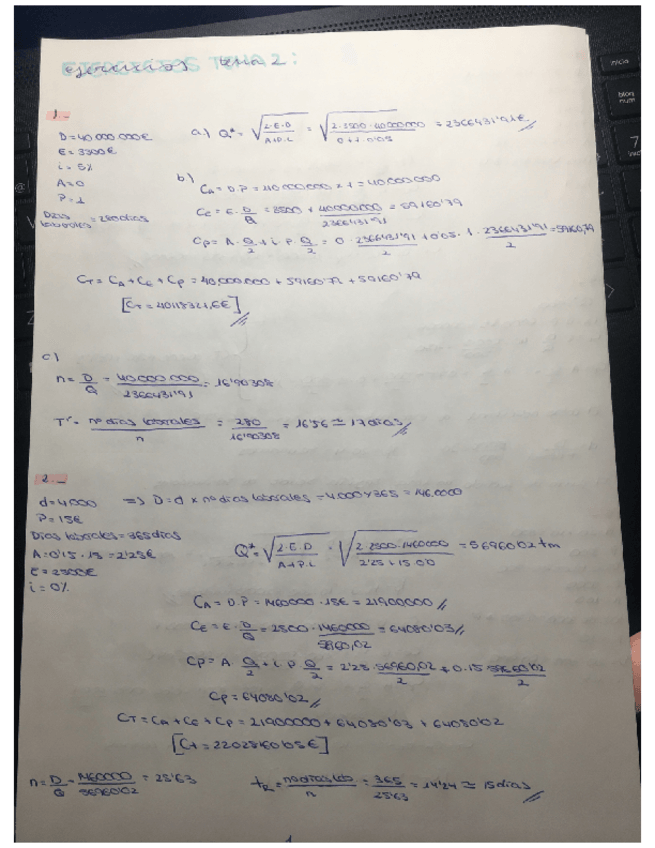 ejercicios tema 2:
1.-
D=40000000€
E=3500€
i=5%
A=0
P=1
Días laborales = 280 días
a) Q* = √(2·E·D / A+P·i) = √(2·3500·40000000 / 0+1·0'05) = 2366431'91€
b)
CA = D·P = 40.000.000 × 1 = 40.000.000
CE = E · D/Q = 3500 + 40000000/2366431'91 = 59160'79
CP = A · Q/2 + i · P · Q/2 = 0 · 2366431'91/2 + 0'05 · 1 · 2366431'91/2 = 59160,79
CT = CA + CE + CP = 40.000.000 + 59160'79 + 59160'79
[CT = 40118321,6€]
c)
n = D/Q = 40.000.000/2366431'91 = 16'90308
Tr = nº días laborales/n = 280/16'90308 = 16'56 ≅ 17 días
2.-
d=4000 => D = d × nº días laborales = 4000 × 365 = 1460000
P=15€
Días laborales = 365 días
A=0'15·15=2'25€
E=2500€
i=0%
Q* = √(2·E·D / A+P·i) = √(2·2500·1460000 / 2'25+15·0'0) = 56960'02 tm
CA = D·P = 1460000 · 15€ = 21900000
CE = E · D/Q = 2500 · 1460000/56960,02 = 64080'03
CP = A · Q/2 + i · P · Q/2 = 2'25 · 56960,02/2 + 0·15 · 56960'02/2
CP = 64080'02
CT = CA + CE + CP = 21900000 + 64080'03 + 64080'02
[CT = 22028160'05€]
n = D/Q = 1460000/56960'02 = 25'63
tr = nº días lab/n = 365/25'63 = 14'24 ≅ 15 días
1
inicio
bloq
num
7